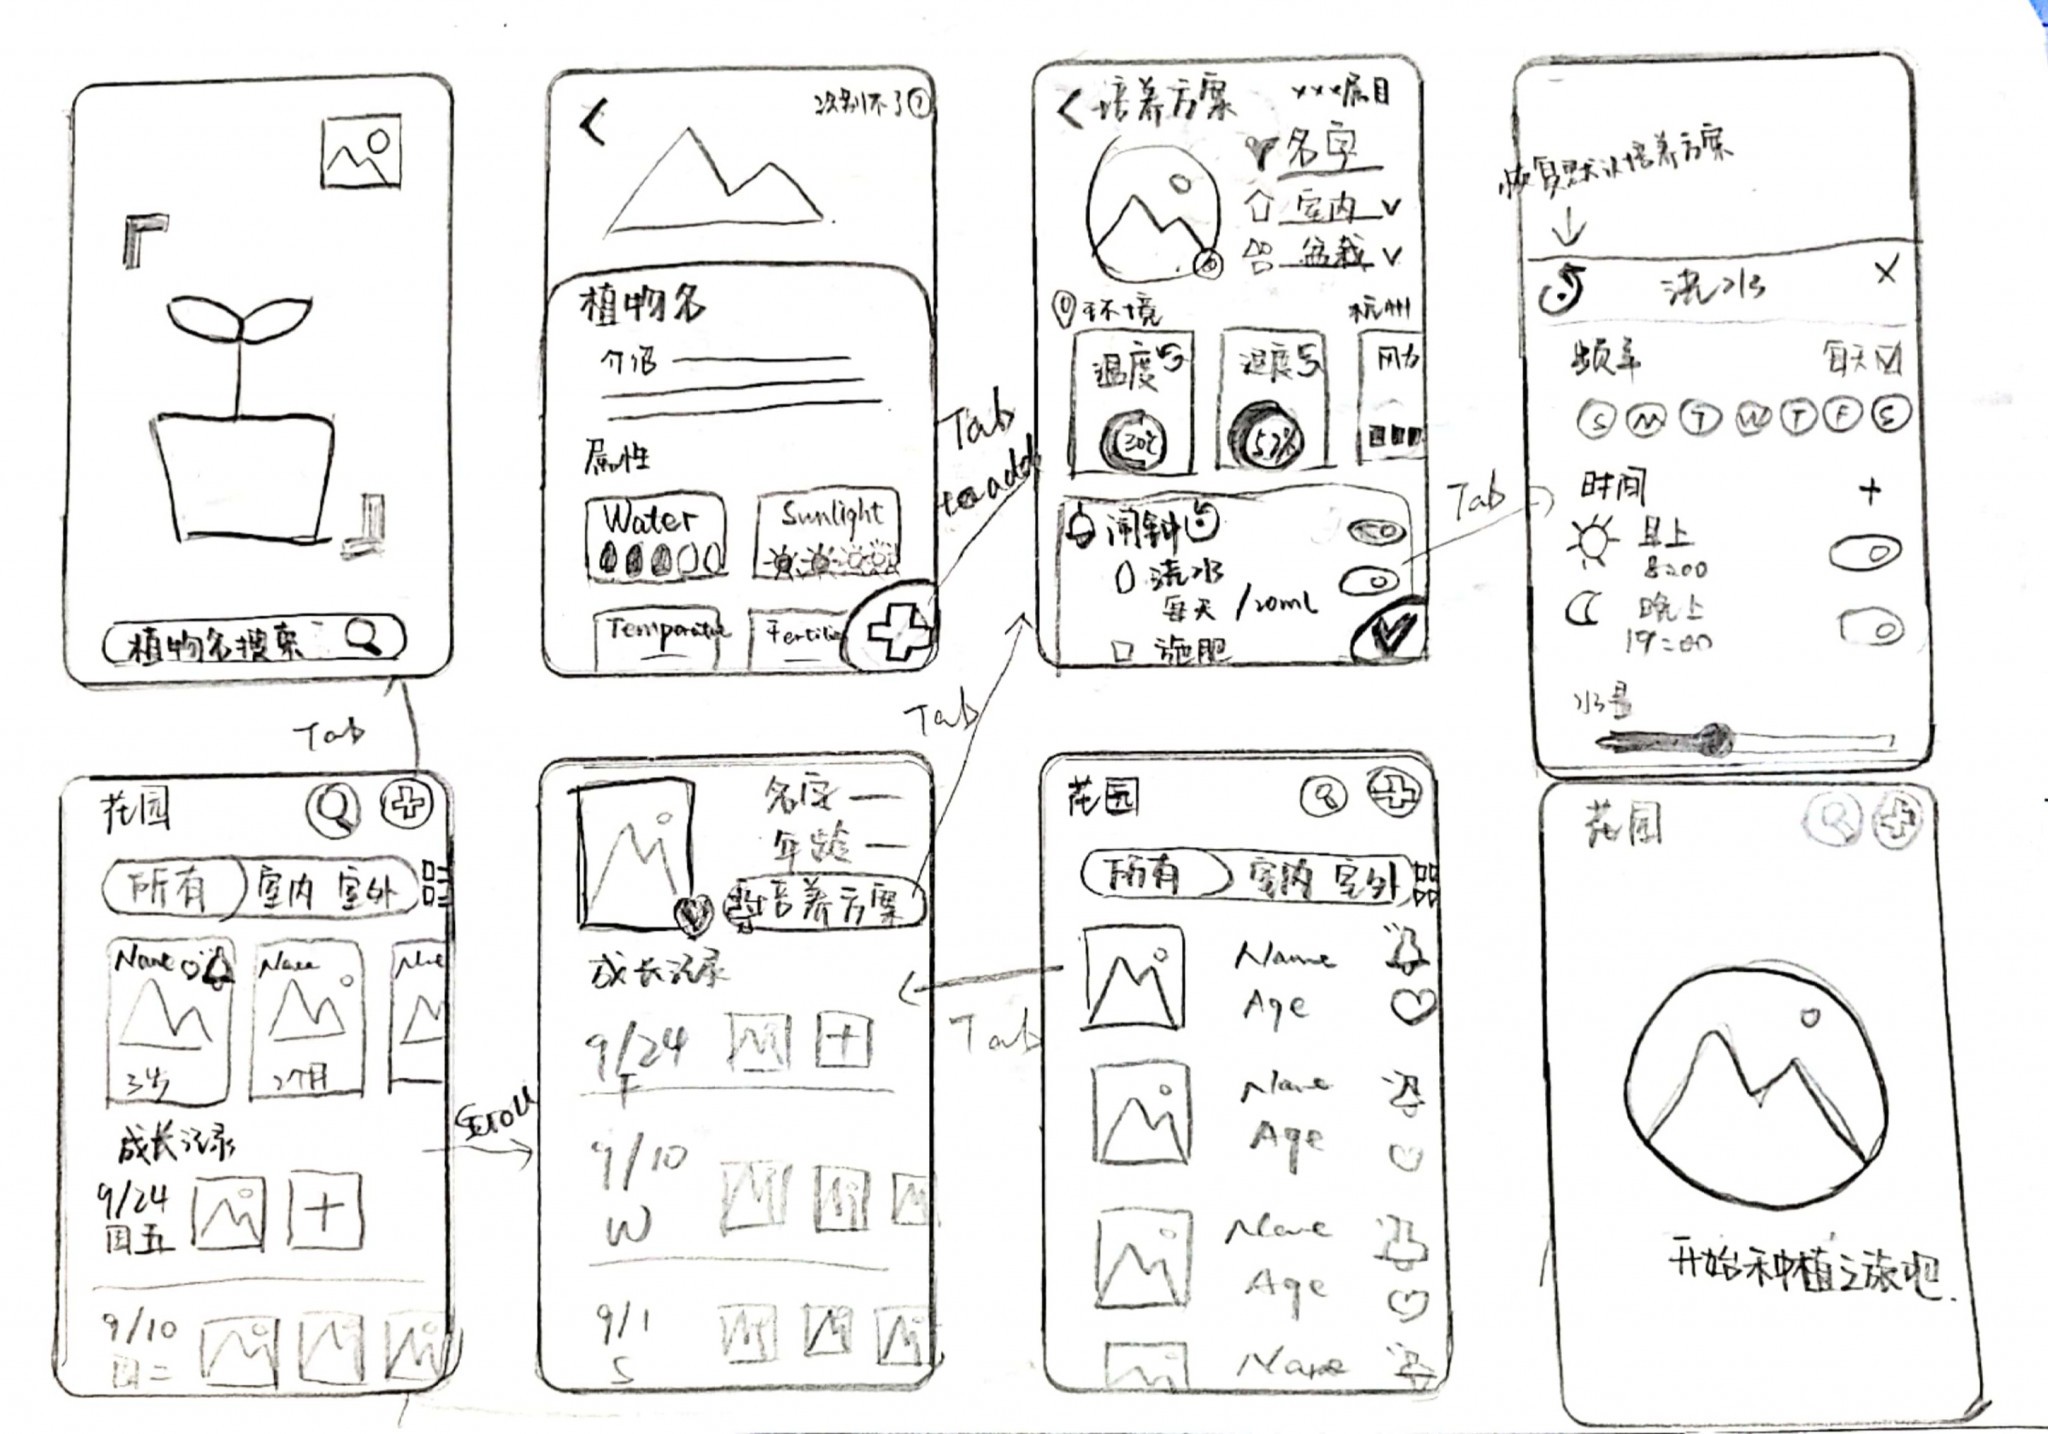 植物名搜索
Tab
识别不了?
植物名
介绍
属性
Water
Sunlight
Temperature
Fertilize
Tab
to add
培养方案
×××属目
名字
室内
盆栽
环境
杭州
温度
湿度
风力
30℃
57%
闹钟
浇水
每天 /20mL
施肥
Tab
恢复默认培养方案
浇水
频率 每天
S M T W T F S
时间 +
早上
8:00
晚上
19:00
水量
花园
所有 室内 室外
Name
Name
3岁
2个月
成长记录
9/24
周五
9/10
周二
Scroll
名字
年龄
培养方案
成长记录
9/24
F
9/10
W
9/1
S
Tab
Tab
花园
所有 室内 室外
Name
Age
Name
Age
Name
Age
Name
花园
开始种植之旅吧.